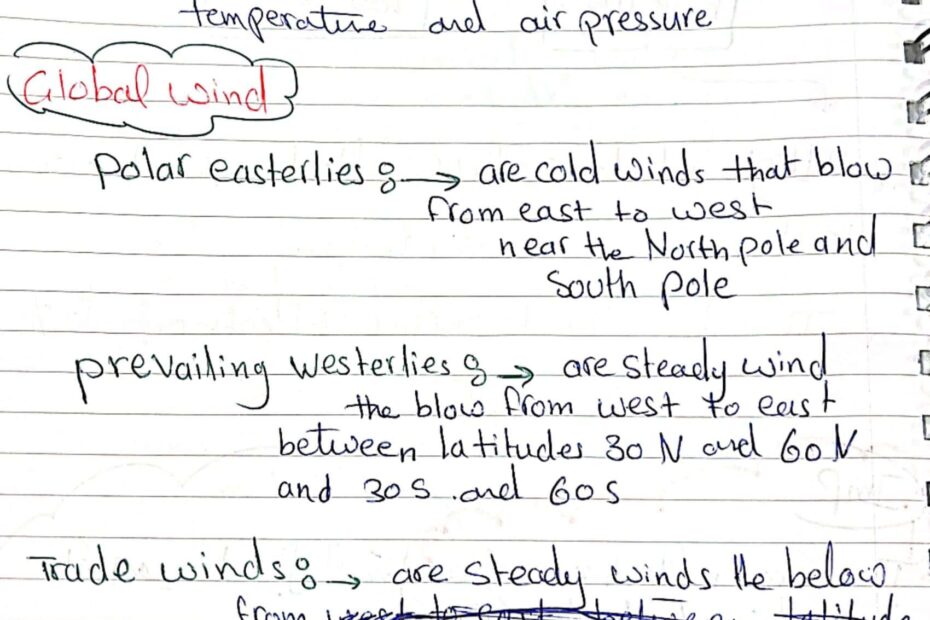 temperature and air pressure
Global wind
Polar easterlies : → are cold winds that blow
from east to west
near the North pole and
South pole
prevailing westerlies : → are steady wind
the blow from west to east
between latitudes 30 N and 60 N
and 30 S and 60 S
Trade winds : → are steady winds the below
from